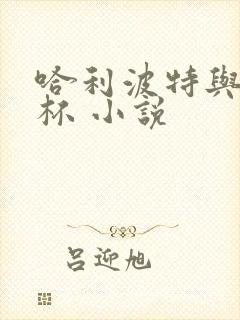 哈利波特與
杯 小說
呂迎旭